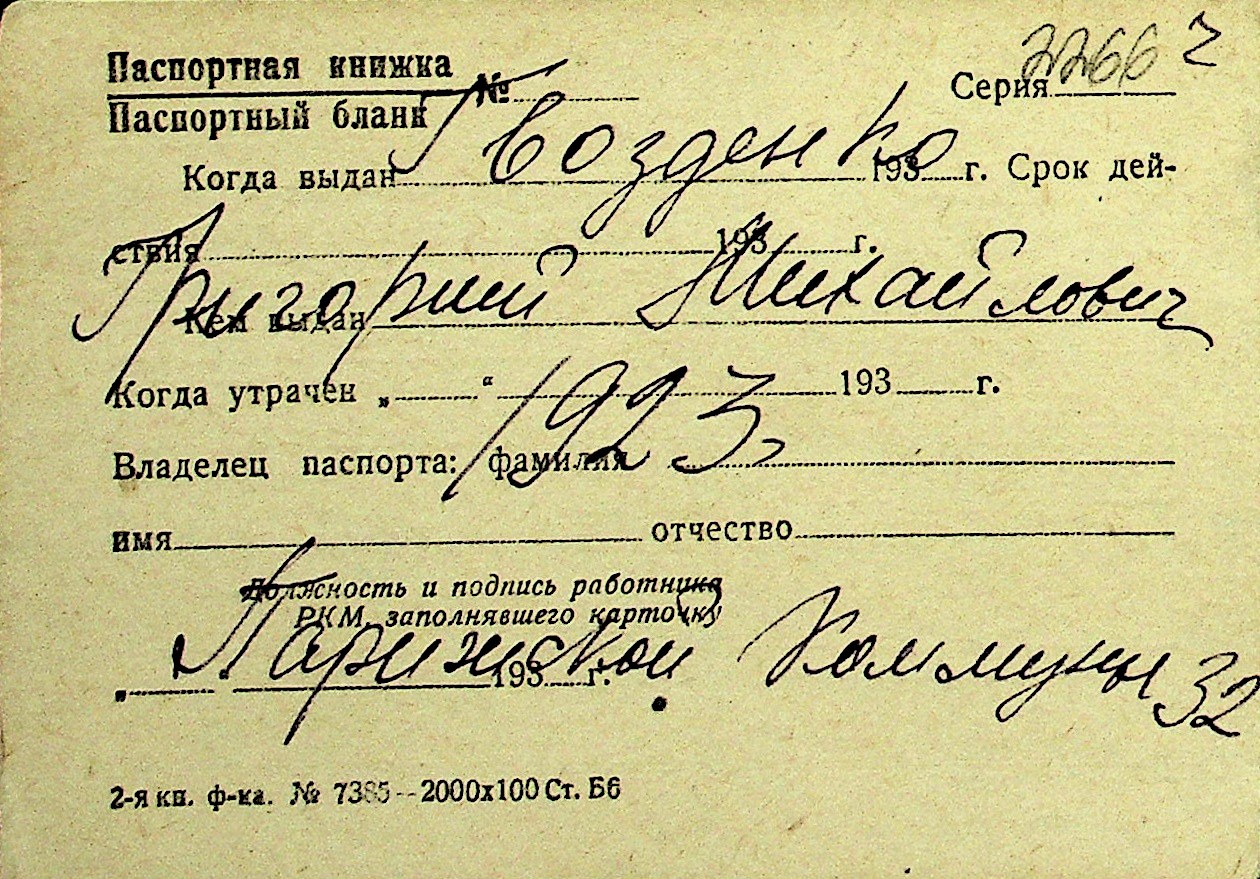 2266 2
Паспортная книжка
Паспортный бланк
№ Серия
Гвозденко
Когда выдан 193 г. Срок дей-
ствия 193 г.
Григорий Михайлович
Кем выдан
Когда утрачен „ “ 193 г.
1923
Владелец паспорта: фамилия
имя отчество
Должность и подпись работника
РКМ, заполнявшего карточку
Парижской Коммуны 32
„ 193 г.
2-я кн. ф-ка. № 7385—2000х100 Ст. Б6